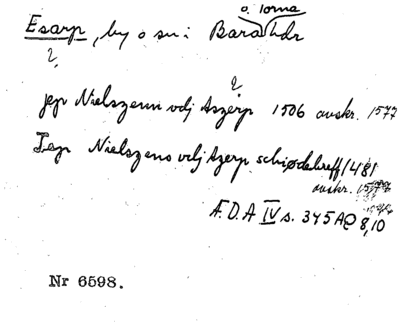 o. Torna
Esarp, by o sn i Bara hdr
?
?
jep Nielszenn vdj Aszerp 1506 avskr. 1577
Jep Nielszens vdj Azerp schiødebreff 1481
avskr. 1577
A.D.A IV s. 345 A 8,10
Nr 6598.